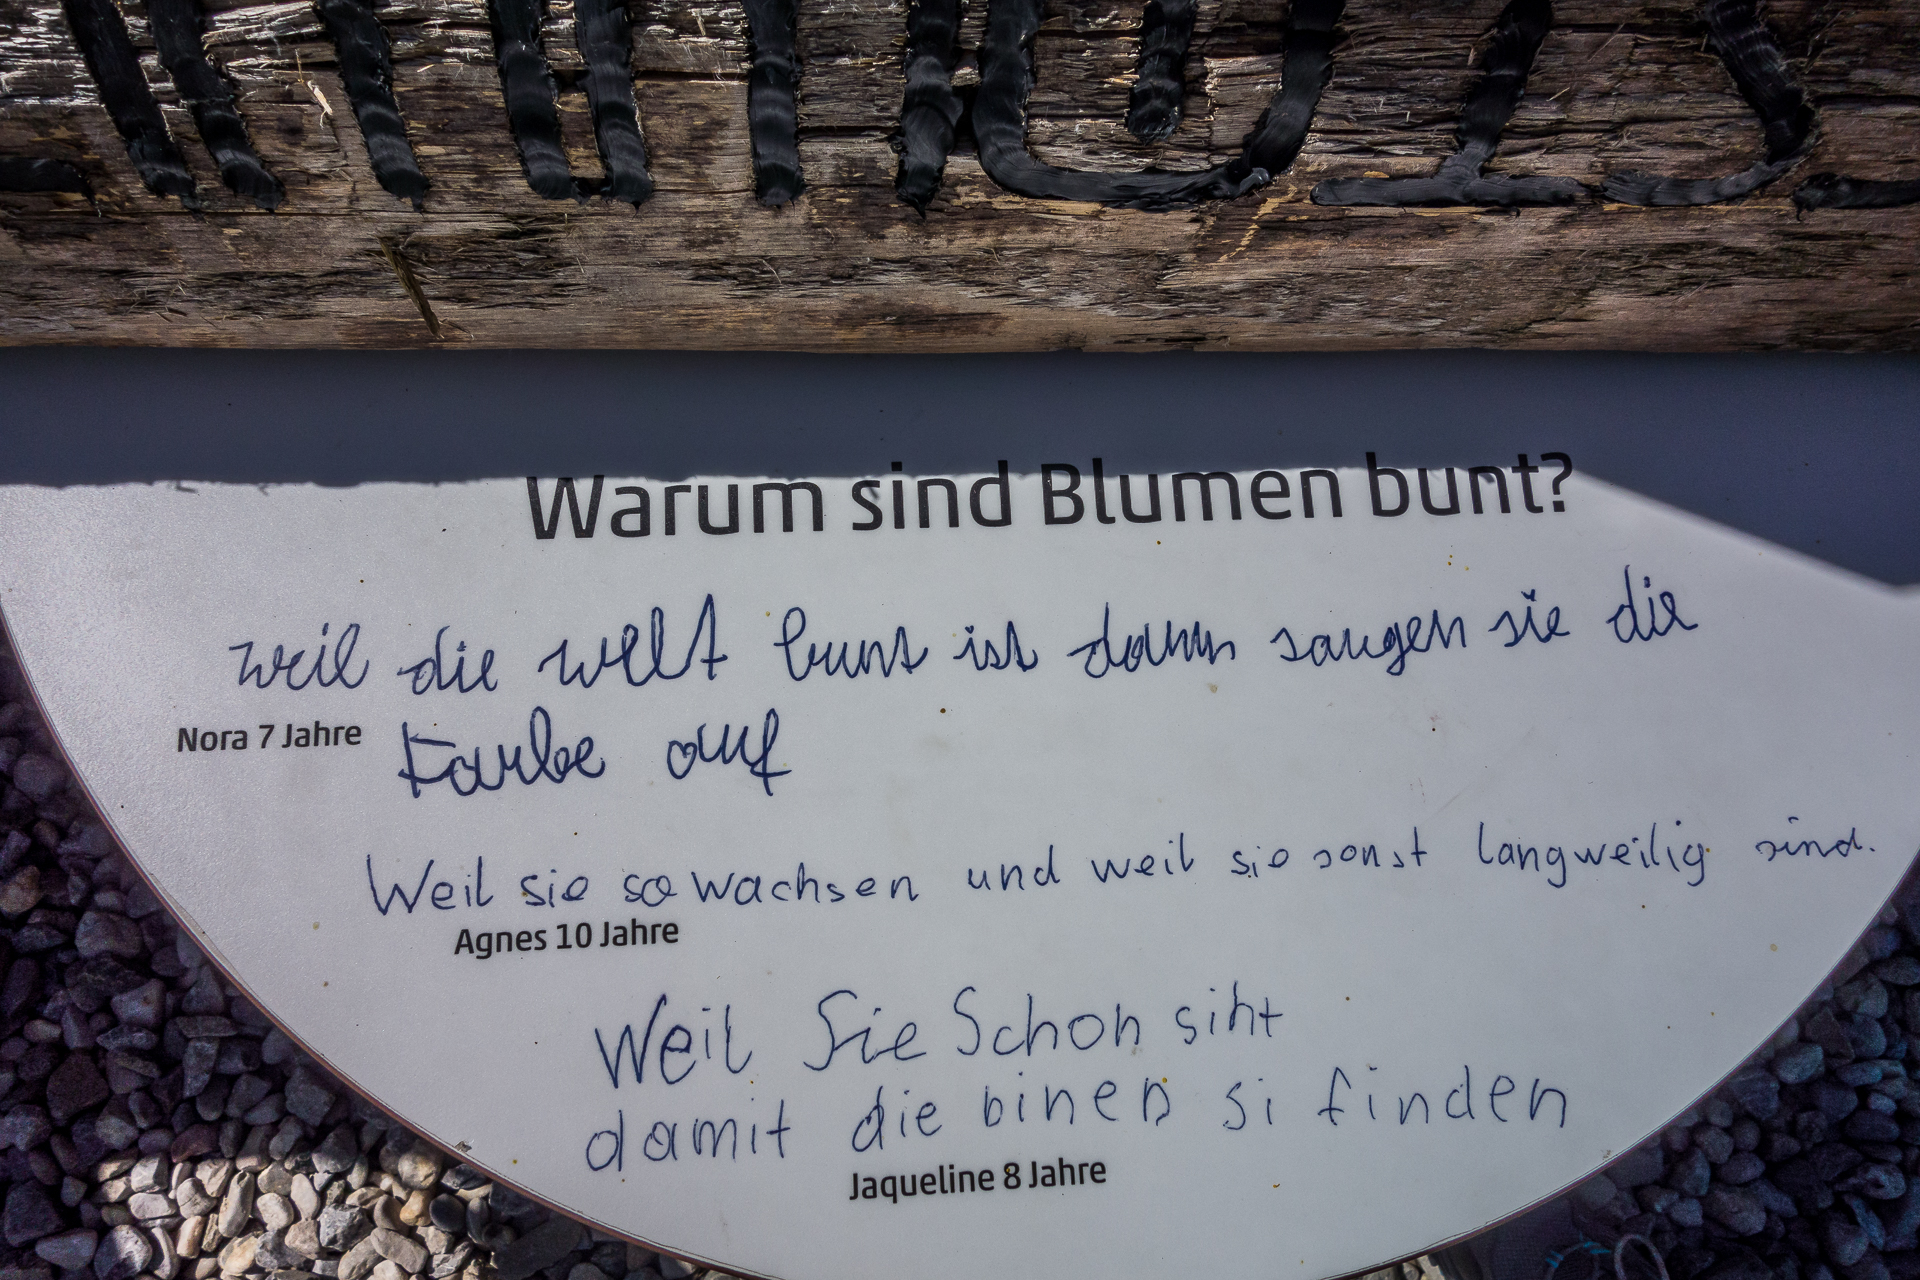 Warum sind Blumen bunt?
weil die welt bunt ist dann saugen sie die
Farbe auf
Nora 7 Jahre
Weil sie so wachsen und weil sie sonst langweilig sind.
Agnes 10 Jahre
Weil Sie Schon siht
damit die binen si finden
Jaqueline 8 Jahre